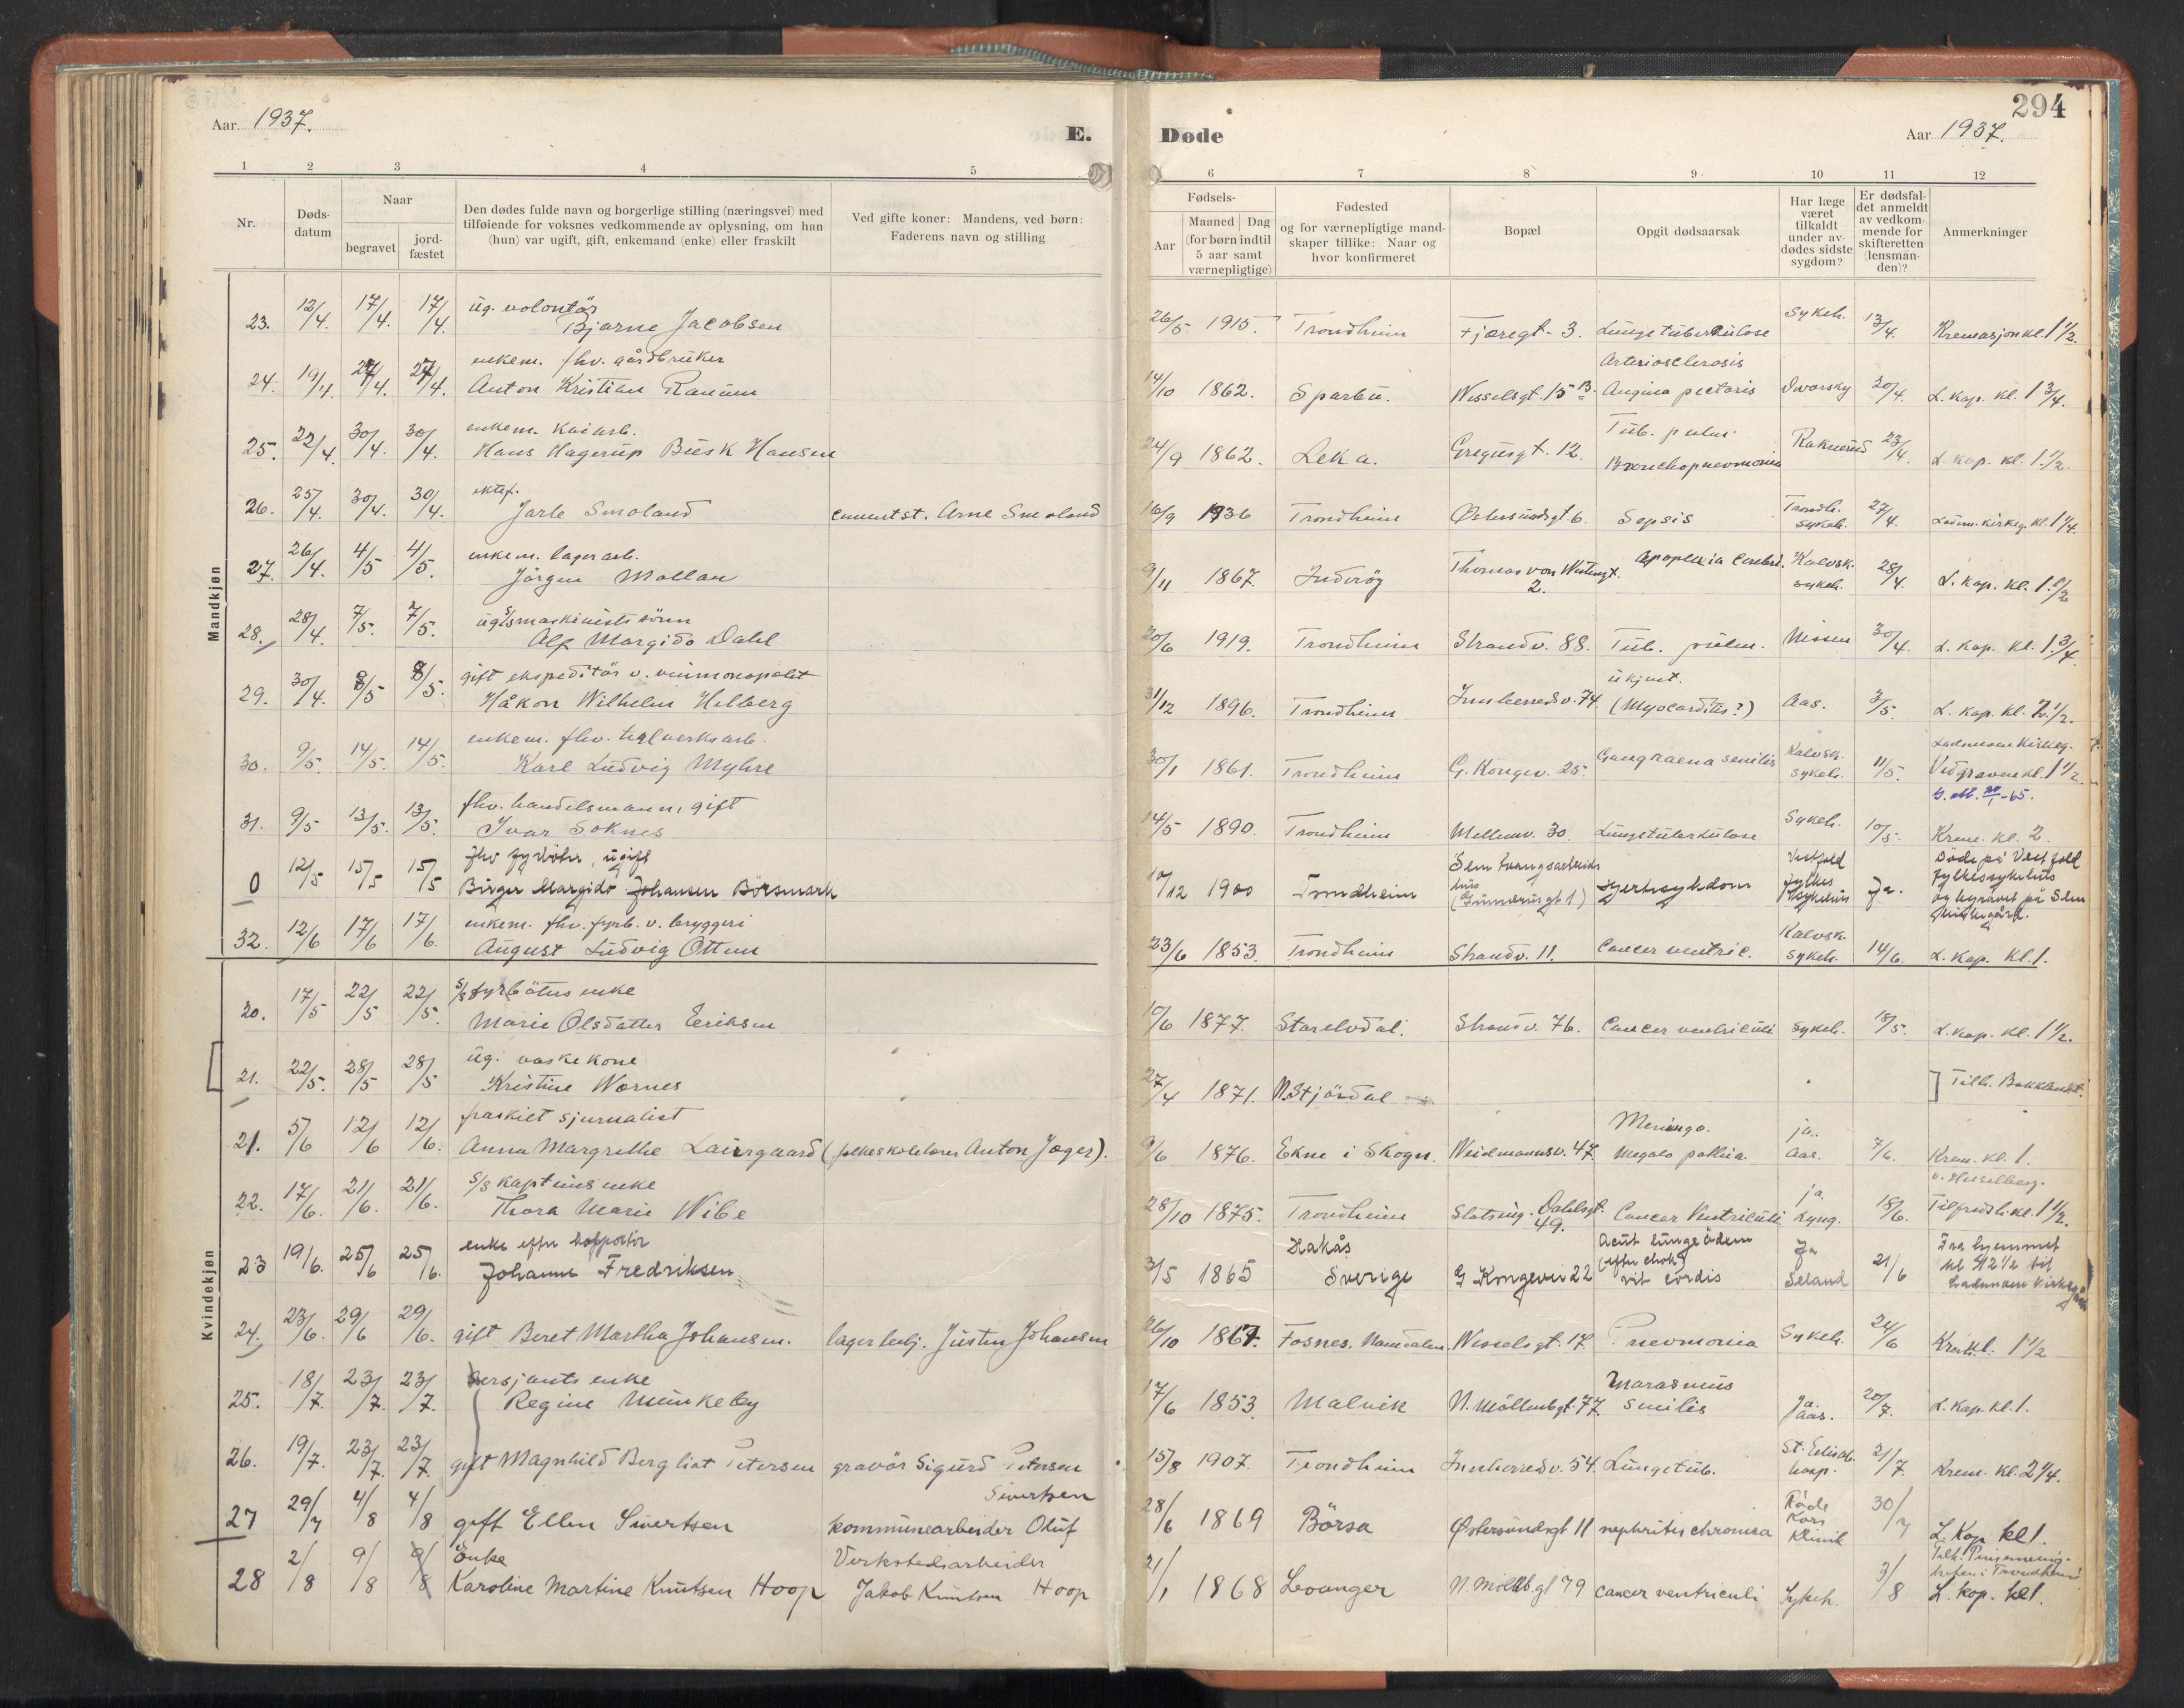 294
Aar. 1937. E. Døde Aar 1937.
1 2 3 4 5 6 7 8 9 10 11 12
Nr.
Døds-
datum
Naar
begravet
jord-
fæstet
Den dødes fulde navn og borgerlige stilling (næringsvei) med
tilføiende for voksnes vedkommende av oplysning, om han
(hun) var ugift, gift, enkemand (enke) eller fraskilt
Ved gifte koner: Mandens, ved børn:
Faderens navn og stilling
Fødsels-
Aar
Maaned Dag
(for børn indtil
5 aar samt
værnepligtige)
Fødested
og for værnepligtige mand-
skaper tillike: Naar og
hvor konfirmeret
Bopæl
Opgit dødsaarsak
Har læge
været
tilkaldt
under av-
dødes sidste
sygdom?
Er dødsfal-
det anmeldt
av vedkom-
mende for
skifteretten
(lensman-
den)?
Anmerkninger
Mandkjøn
ug. volontør
23. 12/4. 17/4. 17/4. Bjarne Jacobsen 26/5 1915. Trondheim Fjæregt. 3. Lungetuberkulose Sykeh. 13/4. Kremasjon kl. 1 1/2.
enkem. fhv. gårdbruker Arteriosclerosis
24. 19/4. 24/4. 24/4. Anton Kristian Ranum 14/10 1862. Sparbu. Wesselsgt. 15 B. Angina pectoris Dvorsky 20/4. L. kap. kl. 1 3/4.
enkem. kaiarb. Tub. pulm.
25. 22/4. 30/4. 30/4. Hans Hagerup Busk Hansen 24/9 1862. Leka. Gregusgt. 12. Bronchopneumonia Raknerud 23/4. L. kap. kl. 1 1/2.
ektef. Trondh.
26. 25/4. 30/4. 30/4. Jarle Smoland cementst. Arne Smoland 16/9 1936 Trondheim Østersundsgt. 6. Sepsis sykeh. 27/4. Ladem. kirkeg. kl. 1 1/4.
enkem. lagerarb. Thomas von Westengt. Kalvsk.
27. 26/4. 4/5 4/5. Jørgen Mollan 9/11 1867. Inderøy 2. Apoplexia cerebri. sykeh. 28/4. L. kap. kl. 1 1/2
ug. s/s maskinists sønn
28. 28/4. 7/5. 7/5. Alf Margido Dahl 20/6 1919. Trondheim Strandv. 88. Tub. pulm. Nissen 30/4. L. kap. kl. 1 3/4.
gift ekspeditør v. vinmonopolet ukjent.
29. 30/4. 8/5 8/5. Håkon Wilhelm Helberg 31/12 1896. Trondheim Innherredsv. 74 (Myocarditis?) Aas. 3/5. L. kap. kl. 2 1/2.
enkem. fhv. teglverksarb. Kalvsk. Lademoen Kirkeg.
30. 9/5. 14/5. 14/5. Karl Ludvig Myhre 30/1 1861. Trondheim G. Kongev. 25. Gangraena senilis sykeh. 11/5. Ved graven kl. 1 1/2.
fhv. handelsmann, gift
31. 9/5 13/5. 13/5. Ivar Soknes 14/5 1890. Trondheim Mellomv. 30. Lungetuberkulose Sykeh. 10/5. Krem. kl. 2.
fhv fyrbøter, ugift Sem tvangsarbeids Vestfold Døde på Vestfold
0 12/5 15/5 15/5 Birger Margido Johansen Börsmark 10/12 1900 Trondheim hus Hjertesykdom fylkes sykehus Ja. fylkessykehus
og begravet på Sem
kirkegård.
enkem. fhv. fyrb. v. bryggeri Kalvsk.
32. 12/6 17/6 17/6. August Ludvig Ottem 23/6 1853. Trondheim Strandv. 11. Cancer ventric. sykeh. 14/6. L. kap. kl. 1.
Kvindekjøn
s/s fyrbøters enke
20. 17/5 22/5 22/5. Marie Olsdatter Eriksen 10/6 1877. Strandv. 76. Cancer ventriculi Sykeh. 18/5. L. kap. kl. 1 1/2.
ug. vaskekone
21. 22/5. 28/5 28/5 Kristine Wornes 27/4 1871. N. Stjørdal Tilh. Bakklandet.
fraskilt journalist Meningo. ja.
21. 5/6 12/6 12/6. Anna Margrethe Laurgaard (folkeskolelærer Anton Jæger). 9/6 1876. Ekne i Skogn. Weidemannsv. 47. 7/6. Krem. kl. 1.
s/s kapteins enke ja.
22. 17/6. 21/6. 21/6. Thora Marie Wibe 28/10 1875. Trondheim Statsing. Dahlsgt. 49. Cancer Ventriculi Lyng. 18/6. Tilfredsh. kl. 1 1/2.
enke efter Hakås Acut lungeødem Ja Fra hjemmet
23 19/6. 25/6 25/6. Johanne Fredriksen 3/5 1865 Sverige G Kongevei 22 vit cordis Seland 21/6 kl 12 1/2 til
Lademoen Kirkegård
24. 23/6. 29/6 29/6. gift Beret Martha Johansen. lagerbetj. Justin Johansen 26/10 1867. Fosnes, Namdalen. Wesselsgt. 17. Pneumonia Sykeh. 24/6 Krem. kl. 1 1/2
Sersjants enke Marasmus Ja.
25. 18/7. 23/7. 23/7. Regine Munkeby 17/6 1853. Malvik N. Møllenbgt. 77. senilis Aas. 20/7. L. kap. kl. 1.
St. Elisab.
26. 19/7. 23/7. 23/7. gift Magnhild Bergliot Petersen gravør Sigurd Petersen 15/8 1907. Trondheim Innherredsv. 54. Lungetub. hosp. 21/7. Krem. kl. 2 1/4.
Sivertsen Røde
27 29/7 4/8 4/8 gift Ellen Sivertsen kommunearbeider Oluf 28/6 1869 Börsa Østersundsgt 11 nephritis chronica Kors Klinik 30/7 L. Kap. kl 1.
Enke Verkstedsarbeider
28 2/8 9/8 9/8 Karoline Martine Knutsen Hoop Jakob Knutsen Hoop 21/1 1868 Levanger N. Møllenbgt 79 cancer ventriculi Sykeh. 3/8 L. kap. kl 1.